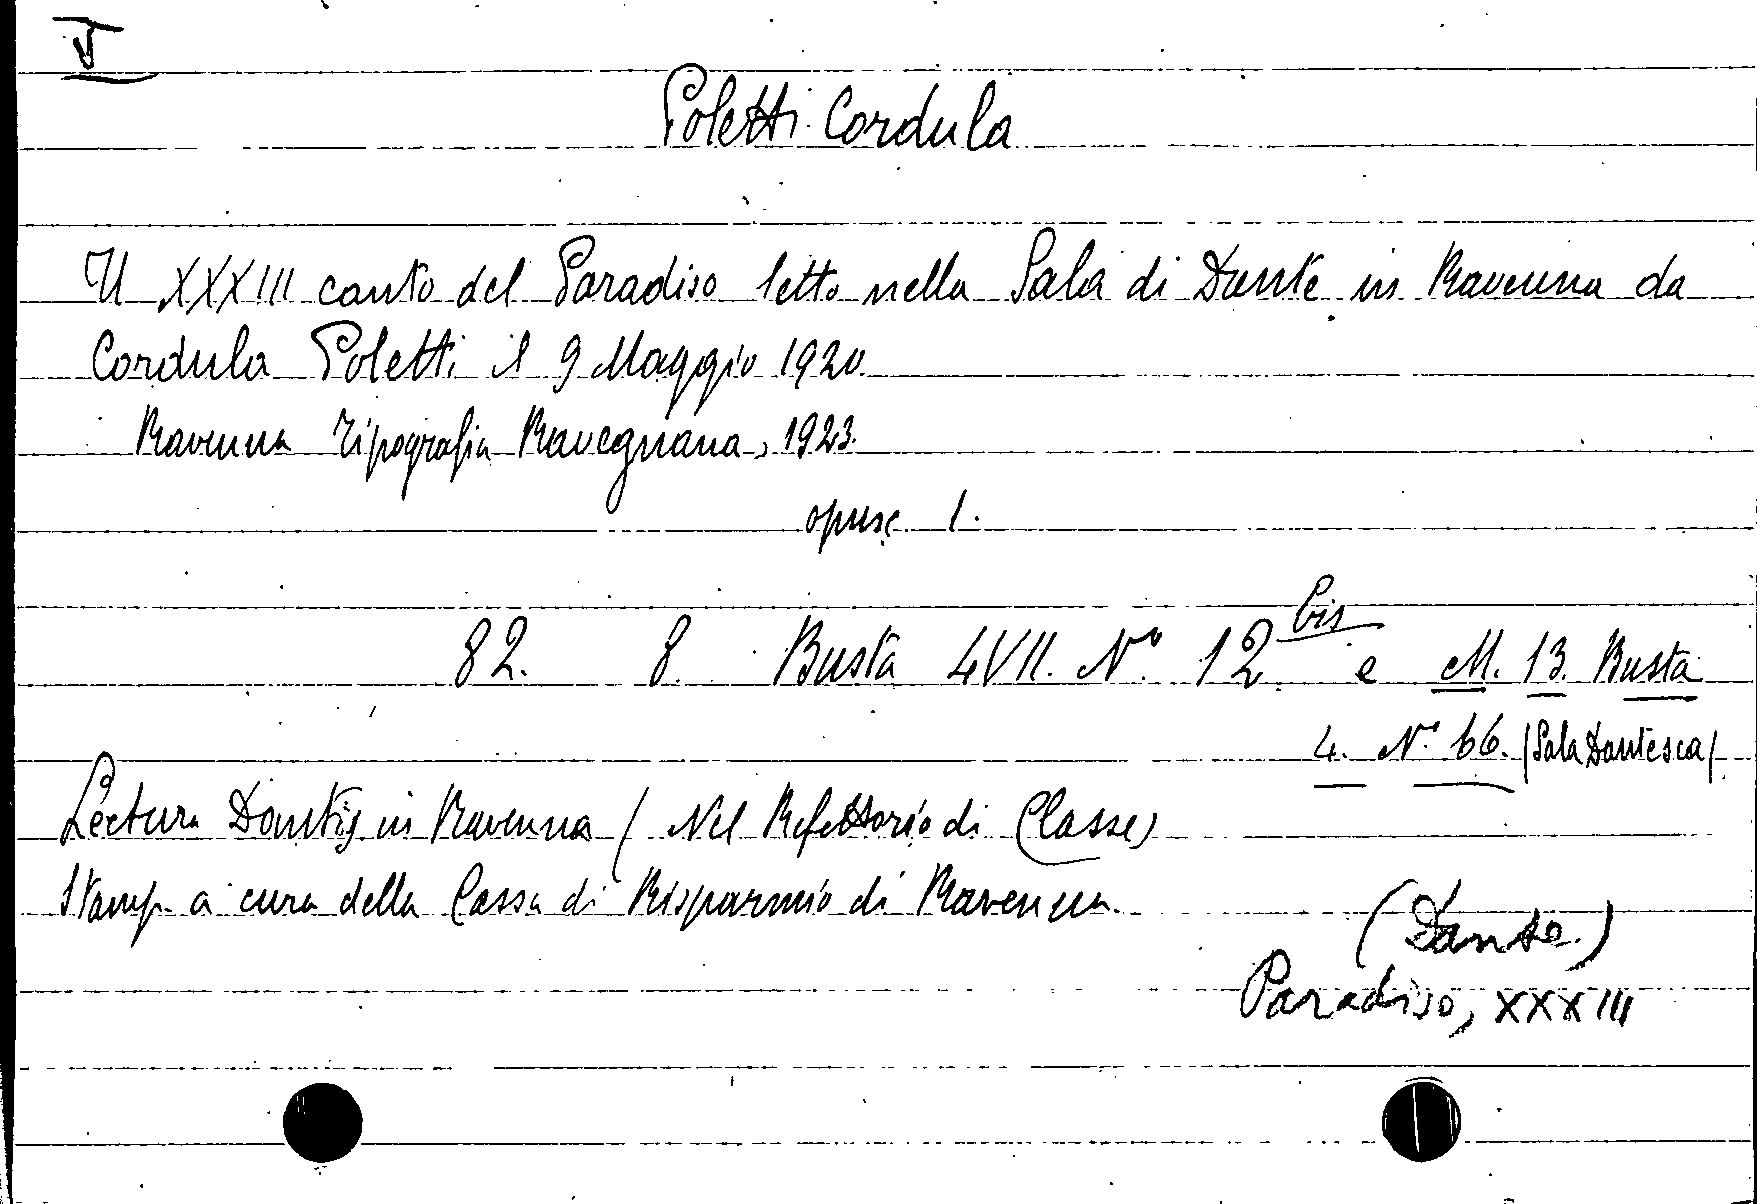 V
Poletti Cordula
Il XXXIII canto del Paradiso letto nella Sala di Dante in Ravenna da
Cordula Poletti il 9 Maggio 1920.
Ravenna Tipografia Ravegnana, 1923.
opusc 1.
82. 8. Busta 4VII. N° 12 bis e M. 13. Busta
4. N° 66. (Sala Dantesca)
Lectura Dantis in Ravenna (Nel Refettorio di Classe)
Stamp. a cura della Cassa di Risparmio di Ravenna.
(Dante.)
Paradiso, XXXIII